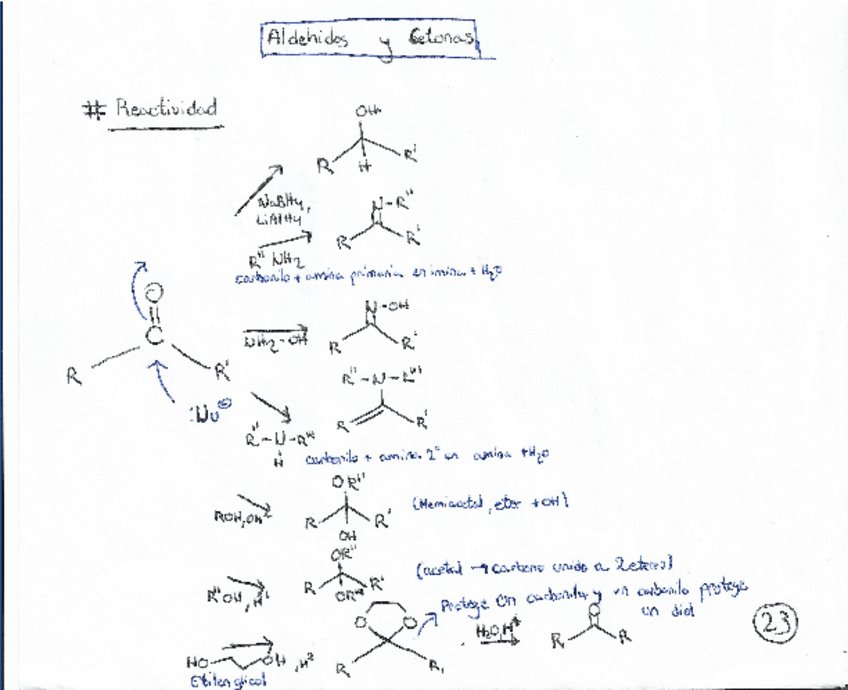 Aldehidos y Cetonas
# Reactividad
OH
R H R'
NaBH4,
LiAlH4
N-R"
R R'
R" NH2
carbonilo + amina primaria en imina + H2O
O
C
R R'
:Nu⊖
N-OH
R R'
NH2-OH
R"-N-R'''
R R'
R"-N-R'''
H
carbonilo + amina 2° en amina + H2O
OR"
R R'
OH
ROH, OH
(Hemiacetal, eter + OH)
OR"
R R'
OR'''
R"OH, H
(acetal → carbono unido a 2 eteres)
Protege un carbonilo y un carbonilo protege
un diol
O O
R R,
HO OH, H
Etilenglicol
H2O, H+
O
R R
23